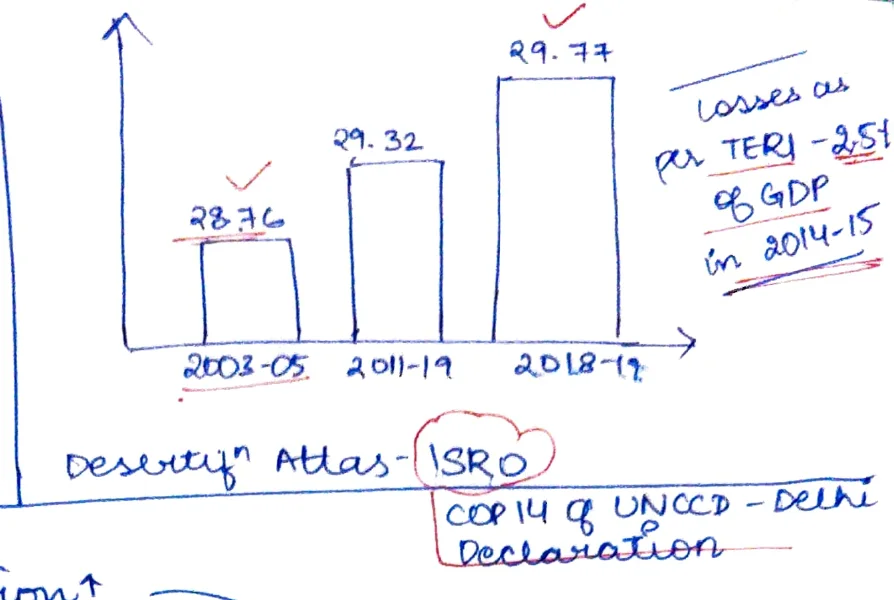 29.77
29.32
28.76
2003-05
2011-19
2018-19
losses as
per TERI - 2.5%
of GDP
in 2014-15
Desertifⁿ Atlas - ISRO
COP 14 of UNCCD - Delhi
Declaration